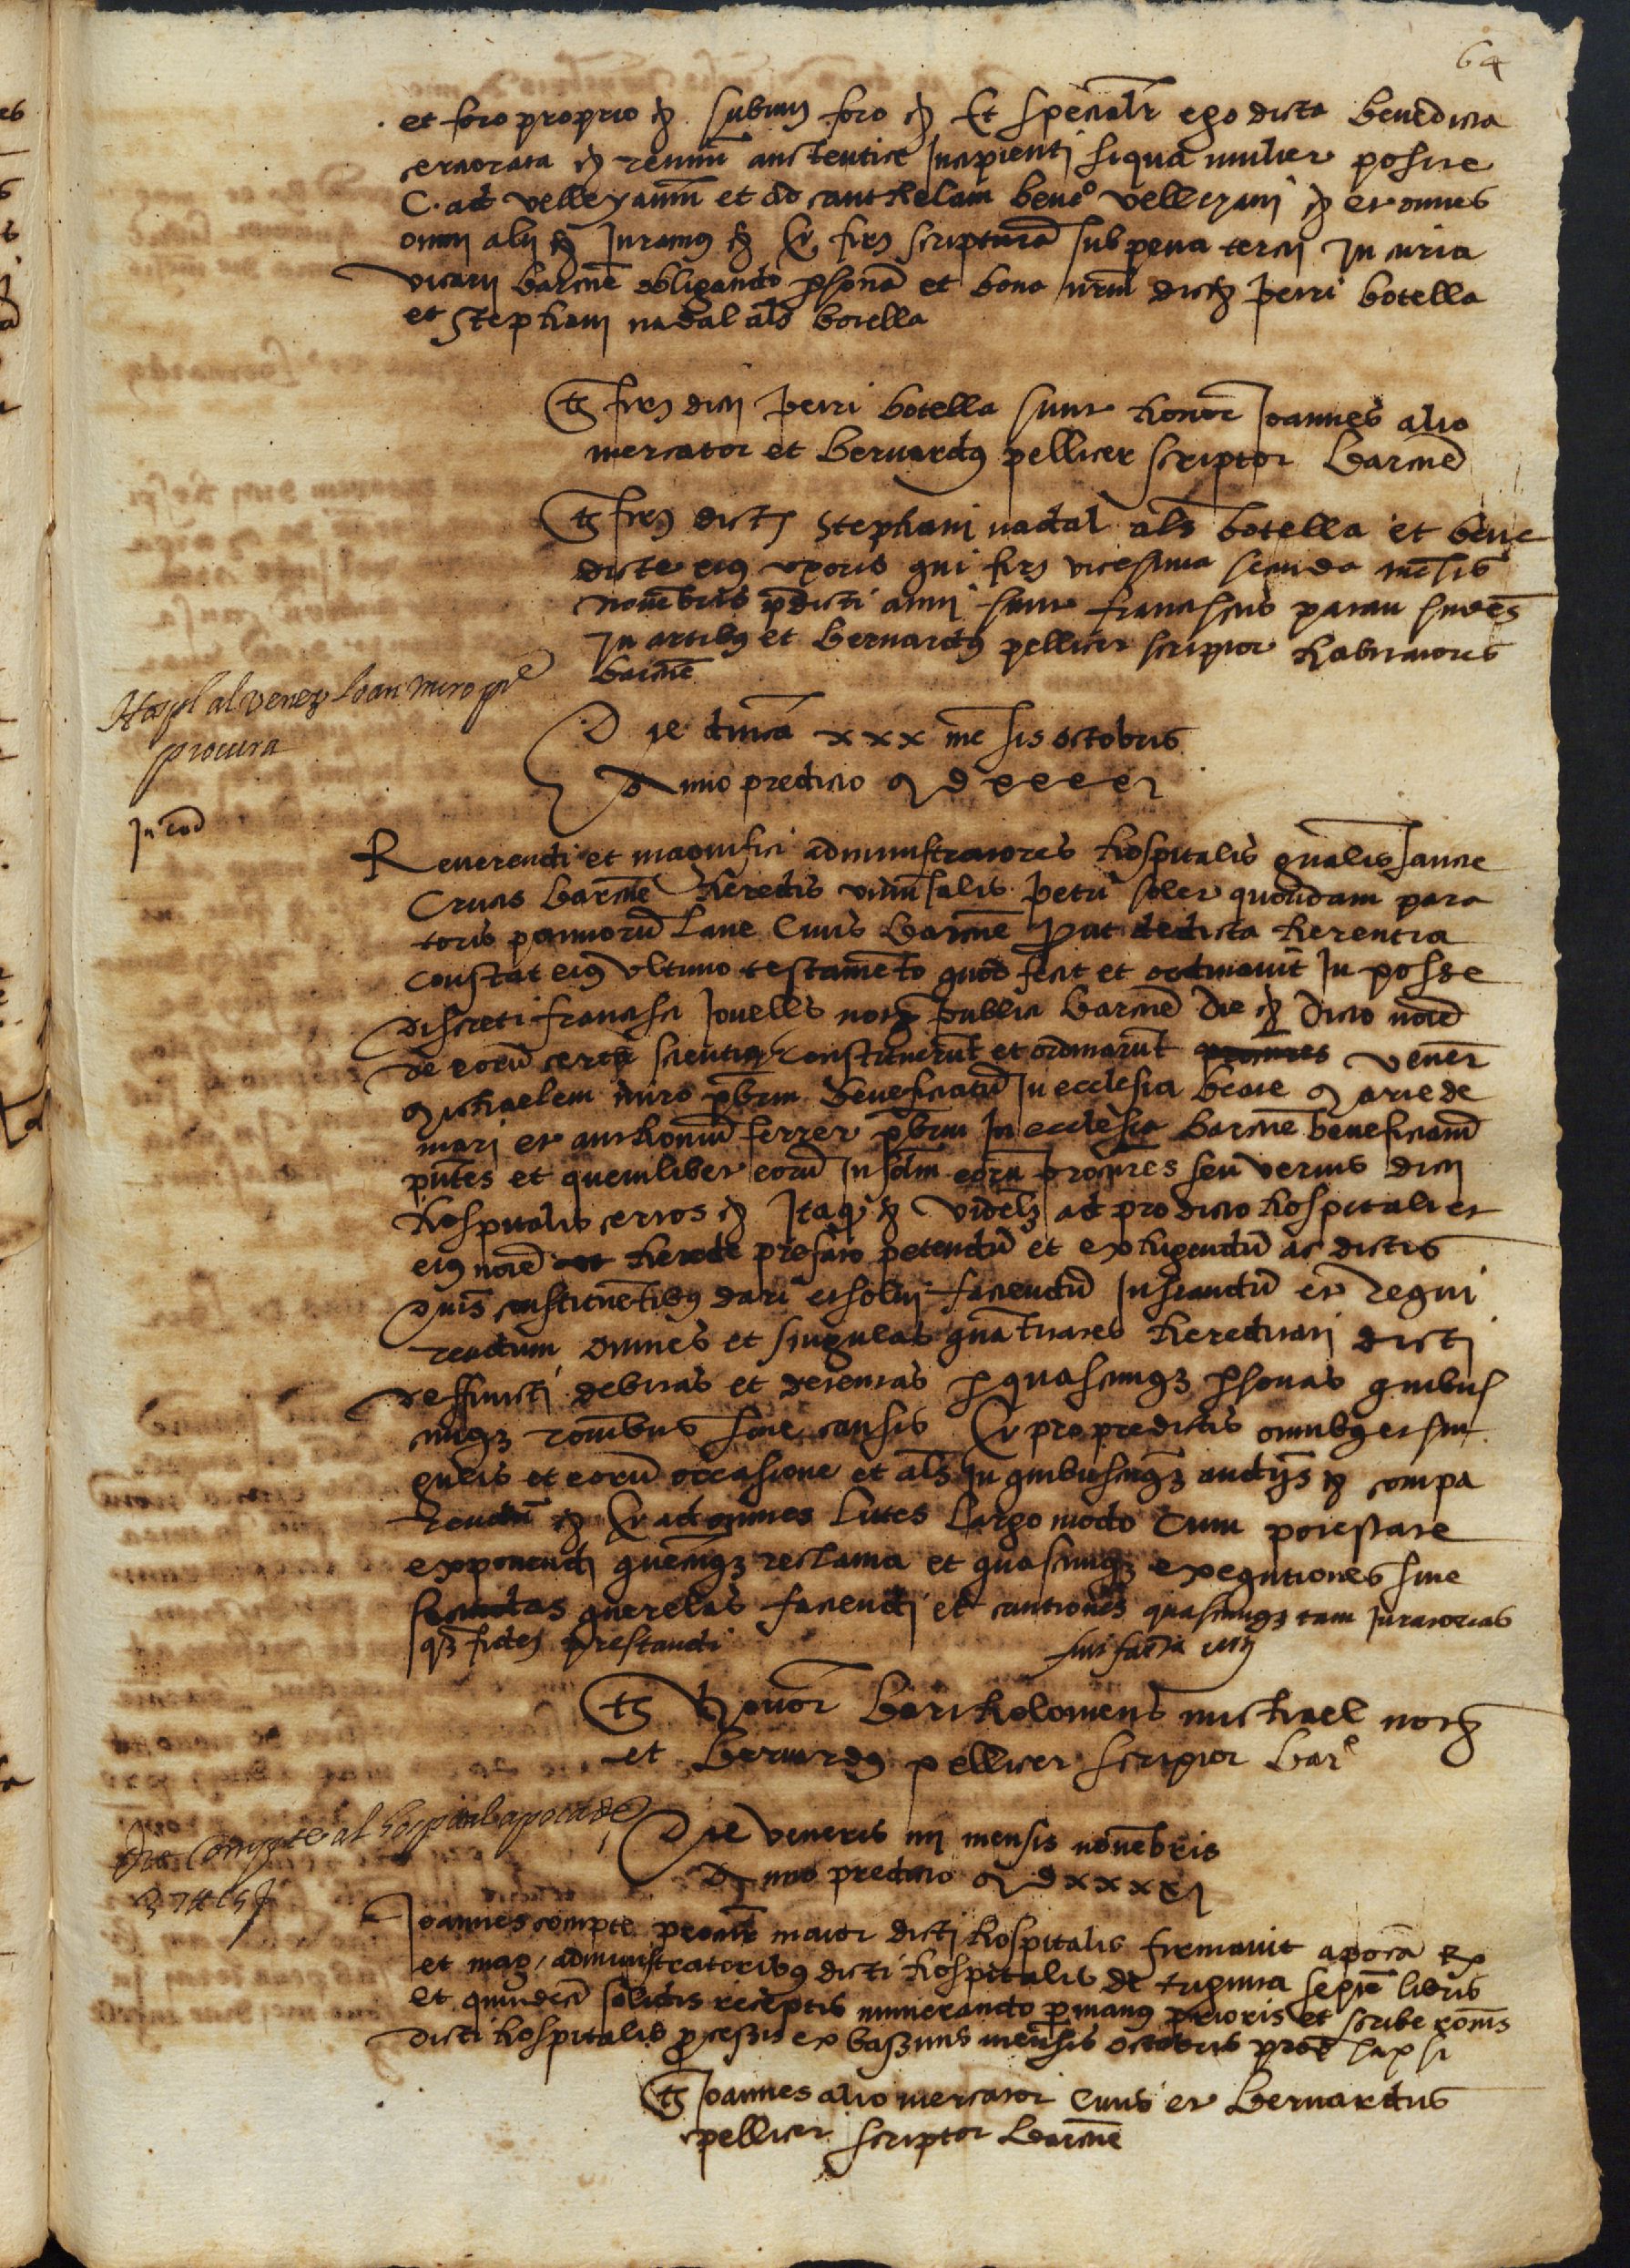 64
et foro proprio etc. submis foro etc. Et specialr ego dicta Benedicta
certiorata etc. renun autentice Incipienti si qua mulier posite
C. ad velleyanum et ad cauthelam benefo velleyani etc. et omnes
omni alij etc. Juramus etc. Et firs scripturam sub pena tercij In curia
vicarij barcne obligando psonam et bona nrum dictor petri botella
et Stephani nadal als botella
Ts firs dicti petri botella sunt honor Joannes alio
mercator et Bernardus pellicer scriptor Barcine
Ts firs dictor Stephani nadal als botella et bene
dicte eius uxoris qui firs vicesima secunda mesis
novebris pdicti anni sunt franciscus parau studes
In artibus et Bernardus pellicer scriptor habitatores
barcne
Hospl al vener Joan miro pre
procura
Die dnica xxx mesis octobris
Anno predicto MDxxxxi
In cod
Reverendi et magnifici administratores hospitalis gnalis sancte
Crucis barcne heredis universalis petri soler quondam para
toris pannoru lane civis barcne prout de dicta herentia
constat eius ultimo testameto quod fecit et ordinavit In posse
discreti francisci Jovells notj publici barcne die etc. dicto noie
de eoru certa scientia constituerut et ordinarut procures vener
Michaelem miro pbrum beneficiatu In ecclesia beate Marie de
mari et anthoniu ferrer pbrum In ecclesia barcne beneficiatu
pntes et quemlibet eoru In solm eoru procures seu verius dicti
hospitalis certos etc. Itaq etc. videlz ad pro dicto hospitali et
eius noie et herede prefato petendu et exhigendu ac dictis
dnis constituetibus dari et solvi faciendu Instandu et requi
rendum omnes et singulas quatitates hereditari dicti
deffuncti debitas et detentas p quascumqz psonas quibus
cumqz ronibus sive causis Et pro predictis omnibus et sin
gulis et eoru occasione et als In quibuscumqz audijs etc. compa
rendu etc. Et ad omnes lites largo modo Cum potestate
exponendi quecumqz reclama et quascumqz exequtiones sive
querelas faciendi et cautiones quascumqz tam Juratorias
qz fidej prestandi
Ts honor Bartholomeus michael notj
et Bernardus pellicer scriptor bare
Joa Compte al hospital apocha de
37 ll 15 s
Die veneris iiij mensis novebris
Anno predicto MDxxxxi
Joannes compte maior dicti hospitalis firmavit apoca Rx
et mag. administratoribus dicti hospitalis de triginta septe libris
et quindeci solidis receptis numerando p manus prioris et scribe ronis
dicti hospitalis pcessis ex baszinis mensis octobris prox lapsi
Ts Joannes alio mercator civis et Bernardus
pellicer scriptor barcine